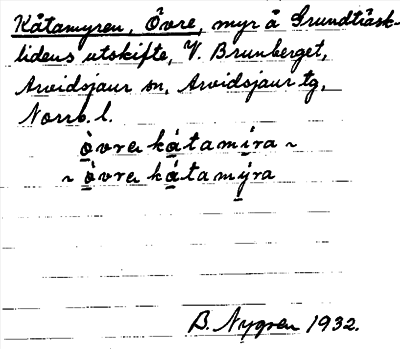 Kåtamyren, Övre, myr å Grundträsk-
lidens utskifte, V. Brunberget,
Arvidsjaur sn, Arvidsjaur tg,
Norrb. l.
òvrekátamíra ~
~ òvrekátamýra
B. Nygren 1932.